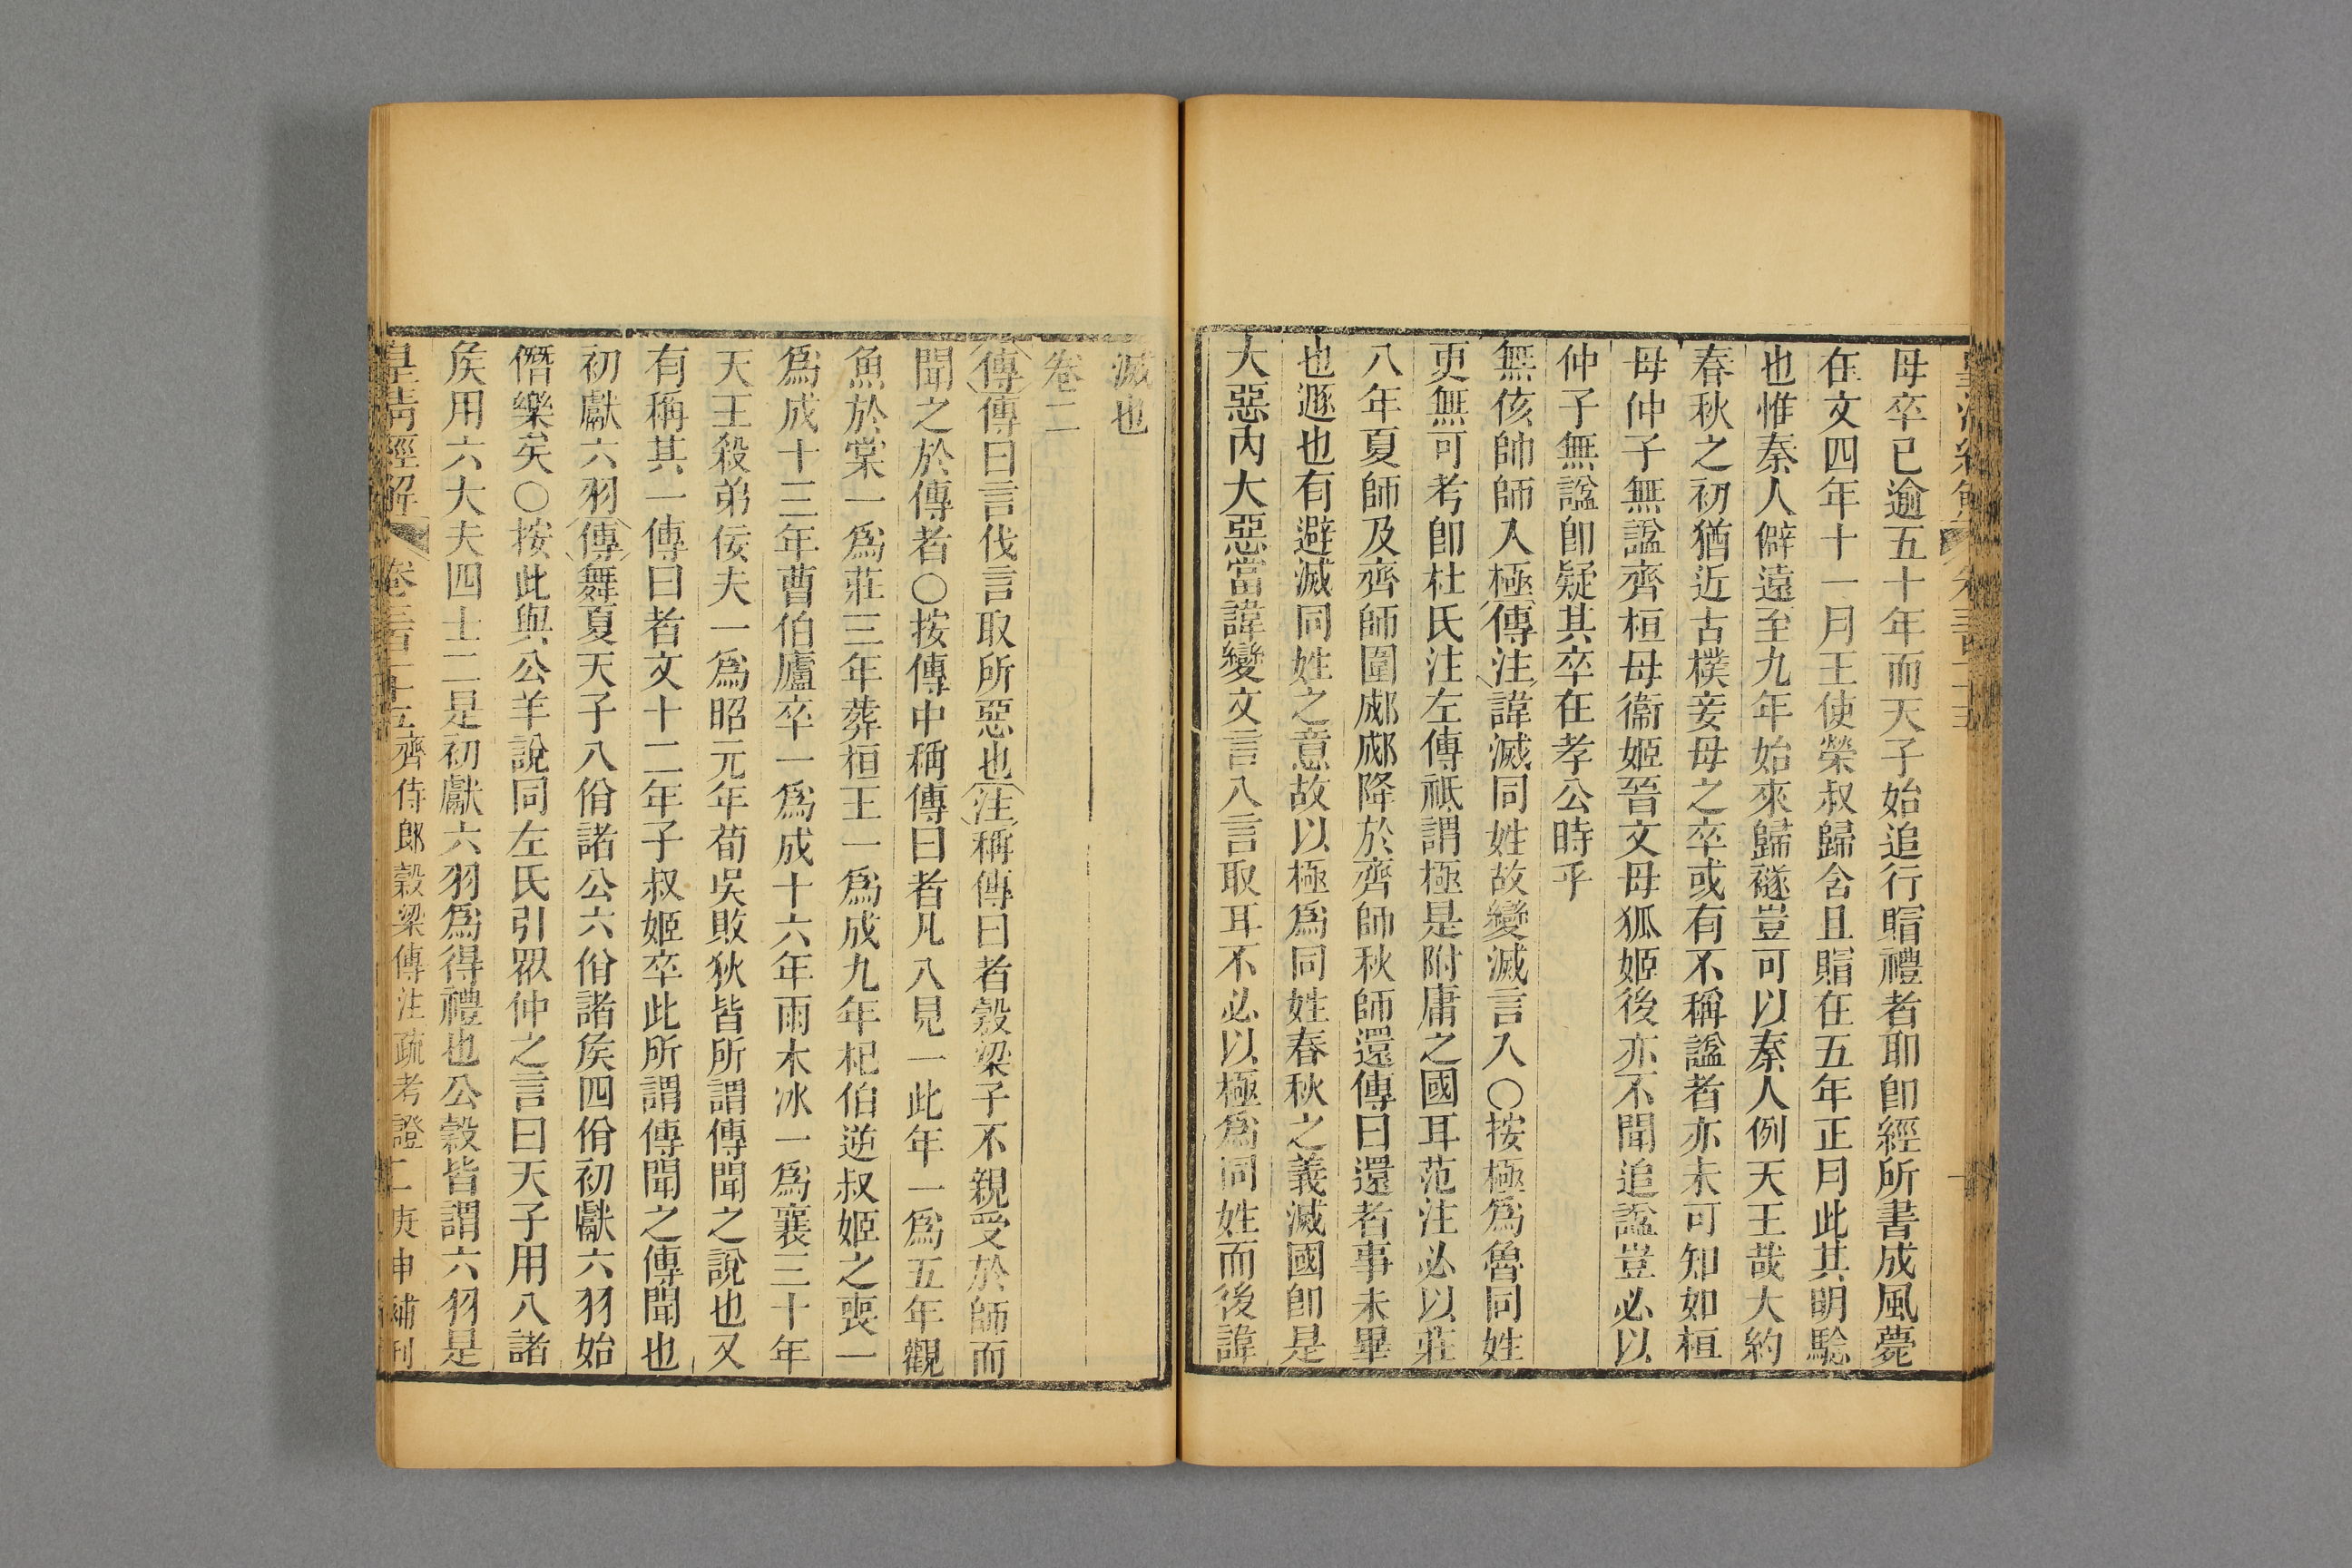 母卒已逾五十年而天子始追行賵禮者耶卽經所書成風薨
在文四年十一月王使榮叔歸含且賵在五年正月此其明驗
也惟秦人僻遠至九年始來歸襚豈可以秦人例天王哉大約
春秋之初猶近古樸妾母之卒或有不稱諡者亦未可知如桓
母仲子無諡齊桓母衞姬晉文母狐姬後亦不聞追諡豈必以
仲子無諡卽疑其卒在孝公時乎
無侅帥師入極傳注諱滅同姓故變滅言入○按極爲魯同姓
更無可考卽杜氏注左傳祗謂極是附庸之國耳范注必以莊
八年夏師及齊師圍郕郕降於齊師秋師還傳曰還者事未畢
也遯也有避滅同姓之意故以極爲同姓春秋之義滅國卽是
大惡內大惡當諱變文言入言取耳不必以極爲同姓而後諱
滅也
卷二
傳傳曰言伐言取所惡也注稱傳曰者穀梁子不親受於師而
聞之於傳者○按傳中稱傳曰者凡八見一此年一爲五年觀
魚於棠一爲莊三年葬桓王一爲成九年杞伯逆叔姬之喪一
爲成十三年曹伯廬卒一爲成十六年雨木冰一爲襄三十年
天王殺弟佞夫一爲昭元年荀吳敗狄皆所謂傳聞之說也又
有稱其一傳曰者文十二年子叔姬卒此所謂傳聞之傳聞也
初獻六羽傳舞夏天子八佾諸公六佾諸矦四佾初獻六羽始
僭樂矣○按此與公羊說同左氏引眾仲之言曰天子用八諸
矦用六大夫四士二是初獻六羽爲得禮也公穀皆謂六羽是
皇淸經解 卷三百二十五齊侍郎穀梁傳注疏考證 二 庚申補刊